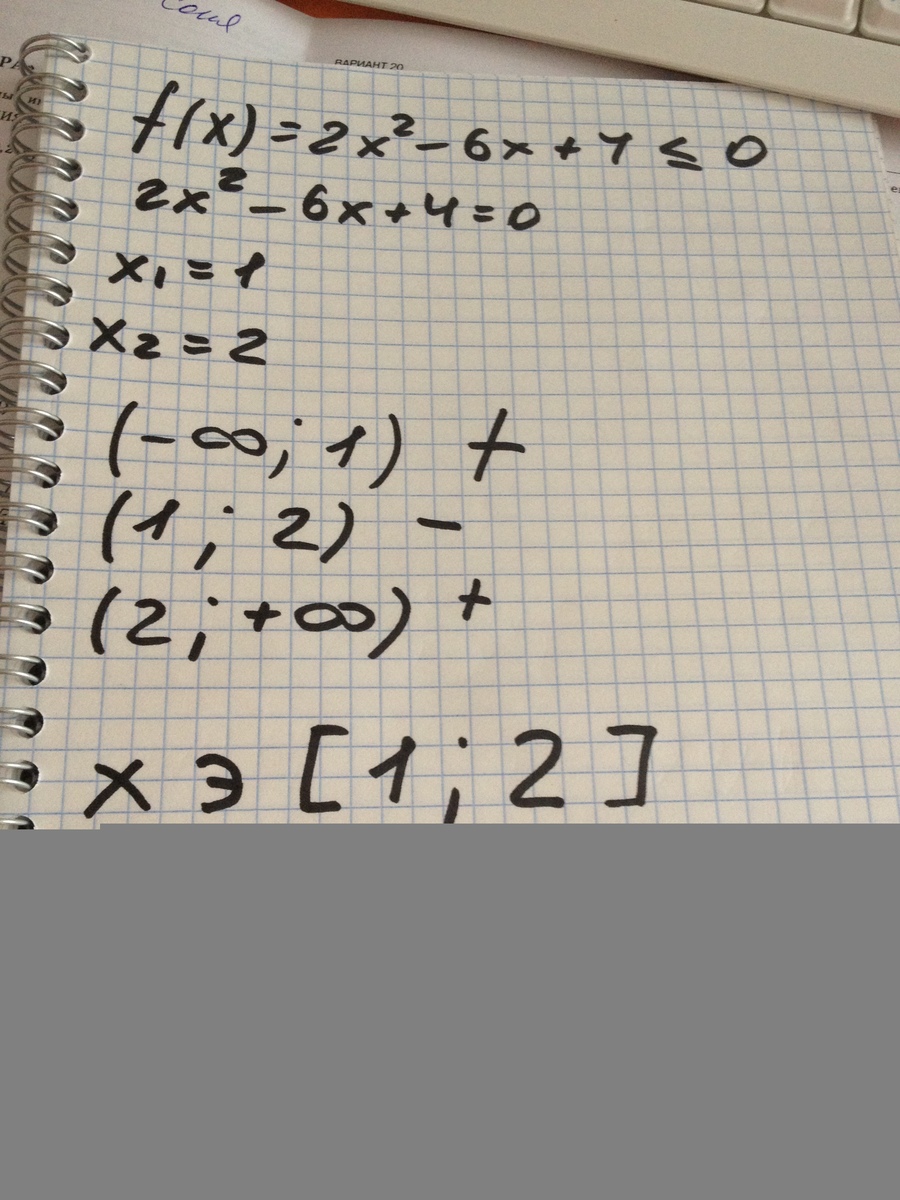 Cоня
ВАРИАНТ 20
f(x) = 2x² - 6x + 4 ≤ 0
2x² - 6x + 4 = 0
x₁ = 1
x₂ = 2
(-∞; 1) +
(1; 2) -
(2; +∞) +
x э [1; 2]